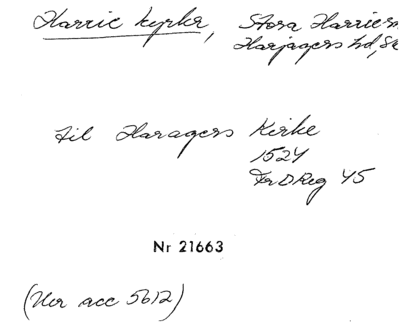 Harrie kyrka, Stora Harries
Harjagers hd, Sk
til Haragers Kirke
1524
FrDReg 45
Nr 21663
(Ur acc 5612)